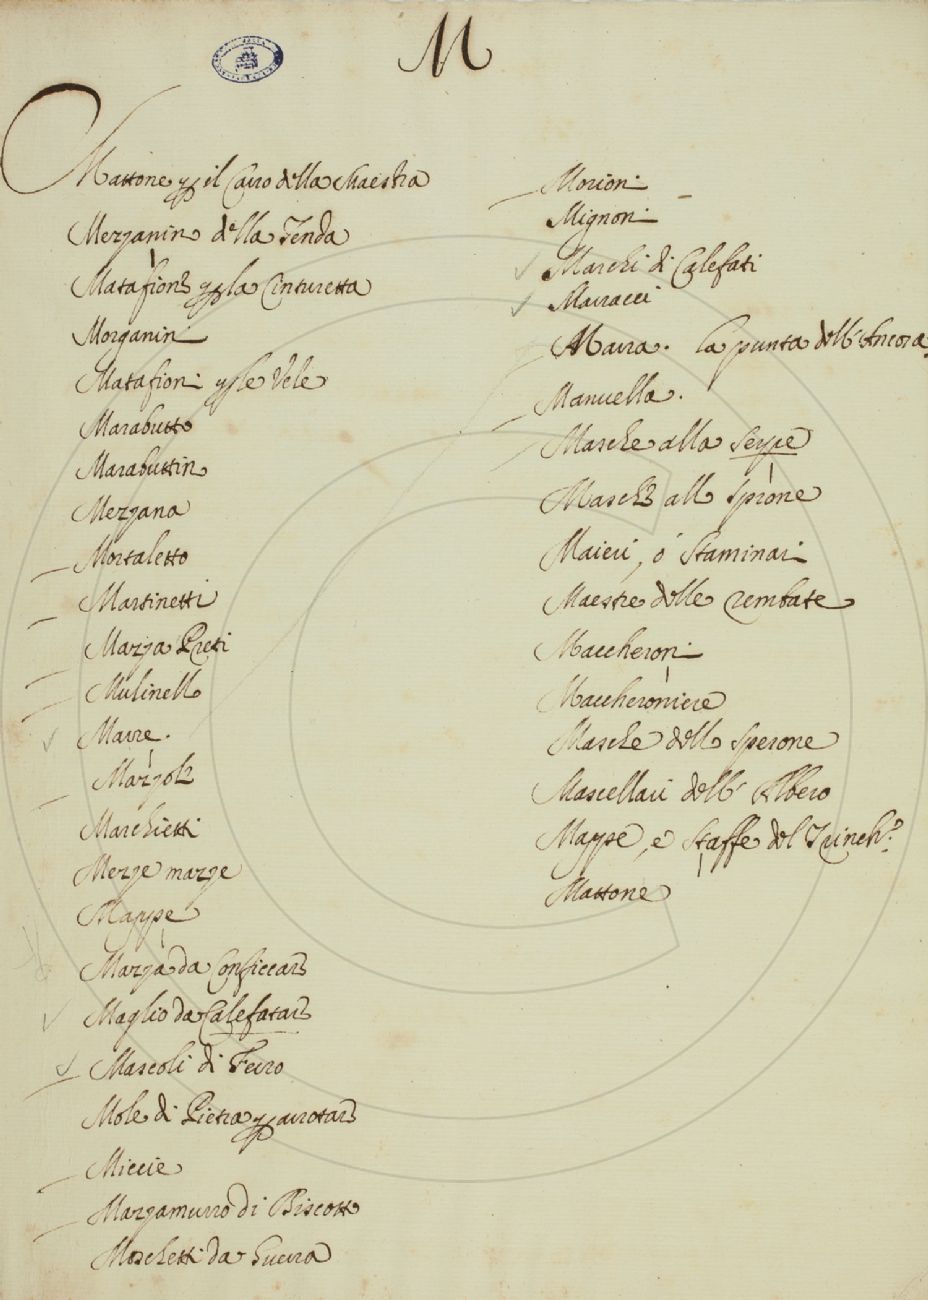 M
Mattone p il Carro della Maestra
Mezzanin della Tenda
Matafioni p la Cinturetta
Morganini
Matafioni p le Vele
Marabutto
Marabuttin
Mezzana
Mortaletto
Martinetti
Mazza Preti
Mulinello
Marre.
Mazzole
Marchietti
Merze marze
Mappe
Mazza da Conficcare
Maglio da Calefatare
Mascoli di Ferro
Mole di Pietra p arrotare
Miccie
Mazzamurro di Biscotto
Moschetti da Guerra
Morioni
Mignoni
Marchi di Calefati
Marracci
Marra. la punta dell' Ancora.
Manuella.
Masche alla Serpe
Masche allo Sprone
Maieri, ó Staminari
Maestre delle rembate
Maccheroni
Maccheroniere
Masche dello Sperone
Mascellari dell' Albero
Mappe, e Staffe del Trinch.º
Mattone